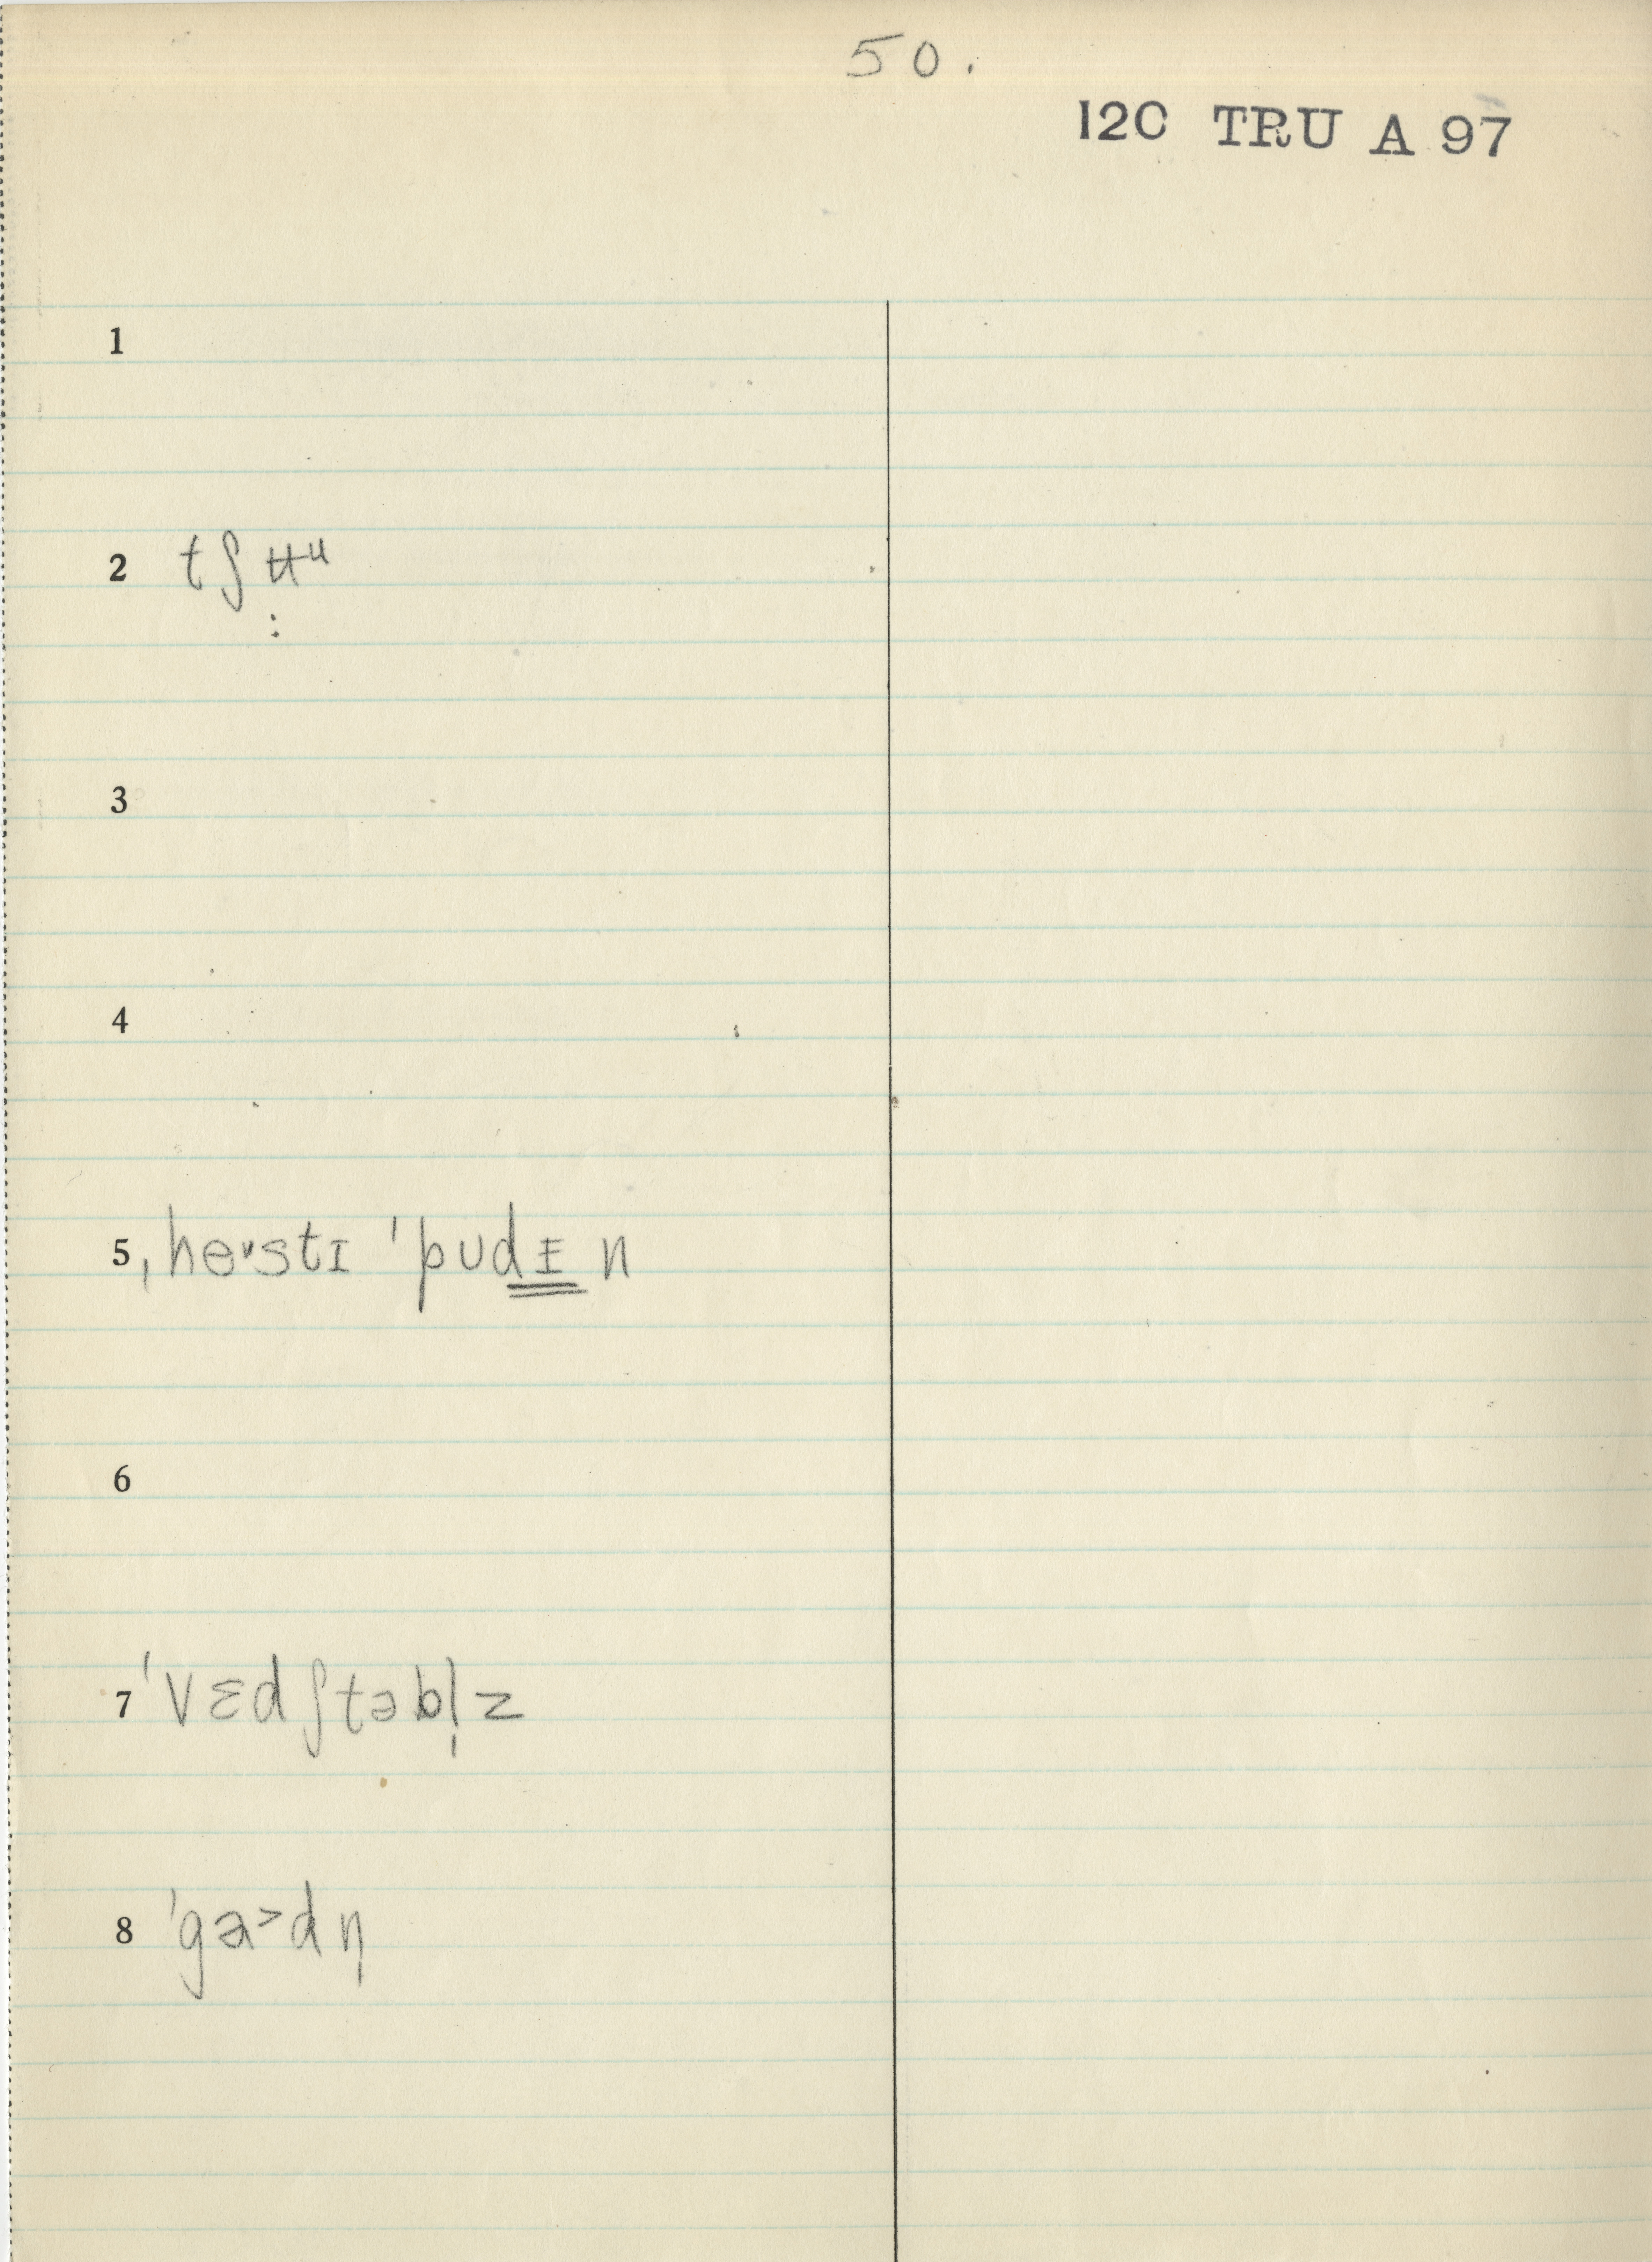 50.
12C TRU A 97
1
2 tʃʉᵘ
:
3
4
5 ˌheᵛstɪ ˈpʊdᵻn
6
7 ˈvɛdʃtəbl̩z
8 ˈga˃dn̩